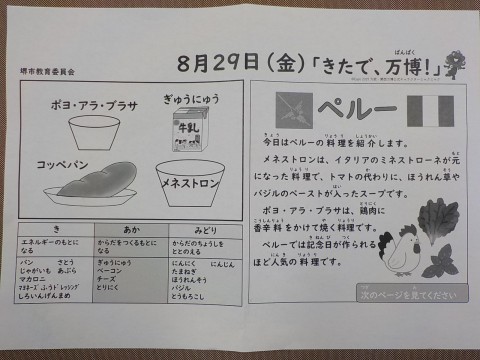 堺市教育委員会
8月29日(金)「きたで、万博!」
ばんぱく
ポヨ・アラ・ブラサ
ぎゅうにゅう
牛乳
コッペパン
メネストロン
き
あか
みどり
エネルギーのもとになる
からだをつくるもとになる
からだのちょうしをととのえる
パン さとう
じゃがいも あぶら
マカロニ
マヨネーズふうドレッシング
しろいんげんまめ
ぎゅうにゅう
ベーコン
チーズ
とりにく
にんにく にんじん
たまねぎ
ほうれんそう
バジル
とうもろこし
ペルー
今日はペルーの料理を紹介します。
メネストロンは、イタリアのミネストローネが元
になった料理で、トマトの代わりに、ほうれん草や
バジルのペーストが入ったスープです。
ポヨ・アラ・ブラサは、鶏肉に
香辛料をかけて焼く料理です。
ペルーでは記念日が作られる
ほど人気の料理です。
次のページを見てください